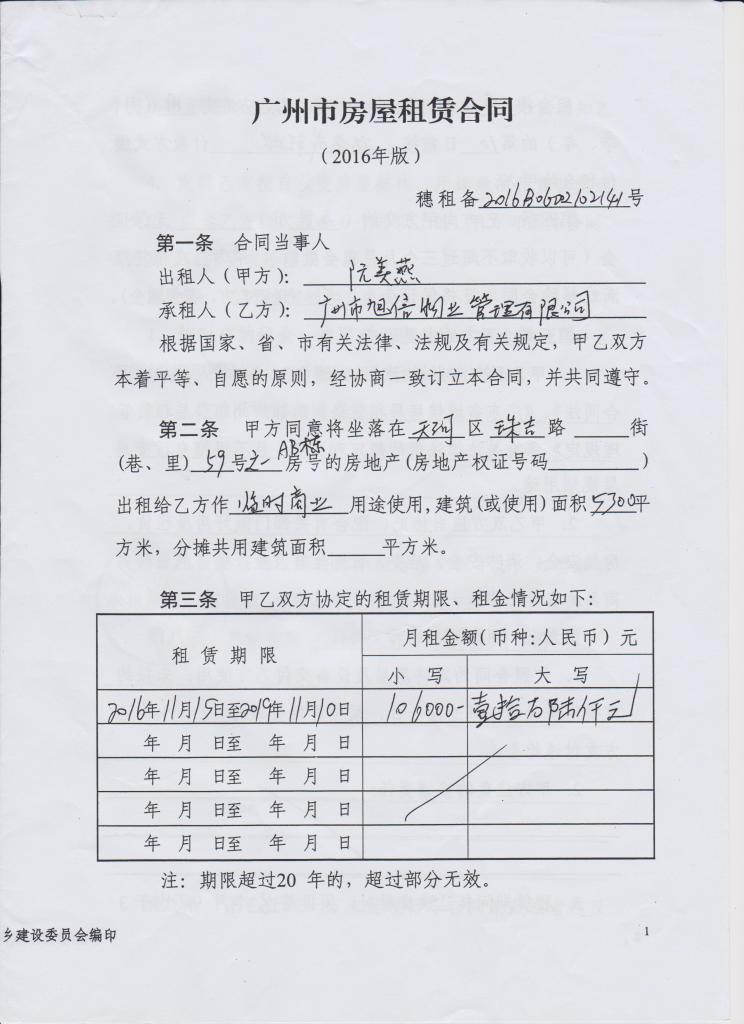 广州市房屋租赁合同
(2016年版)
穗租备2016B0602102141号
第一条 合同当事人
出租人(甲方): 阮美燕
承租人(乙方): 广州市旭信物业管理有限公司
根据国家、省、市有关法律、法规及有关规定,甲乙双方
本着平等、自愿的原则,经协商一致订立本合同,并共同遵守。
第二条 甲方同意将坐落在 天河 区 珠吉 路 街
(巷、里) 59号之一 AB栋 房号的房地产(房地产权证号码 )
出租给乙方作 临时商业 用途使用,建筑(或使用)面积5300平
方米,分摊共用建筑面积 平方米。
第三条 甲乙双方协定的租赁期限、租金情况如下:
租赁期限 月租金额(币种:人民币)元
小写 大写
2016年11月15日至2019年11月10日 106000- 壹拾万陆仟元
年 月 日至 年 月 日
年 月 日至 年 月 日
年 月 日至 年 月 日
年 月 日至 年 月 日
注:期限超过20 年的,超过部分无效。
乡建设委员会编印 1